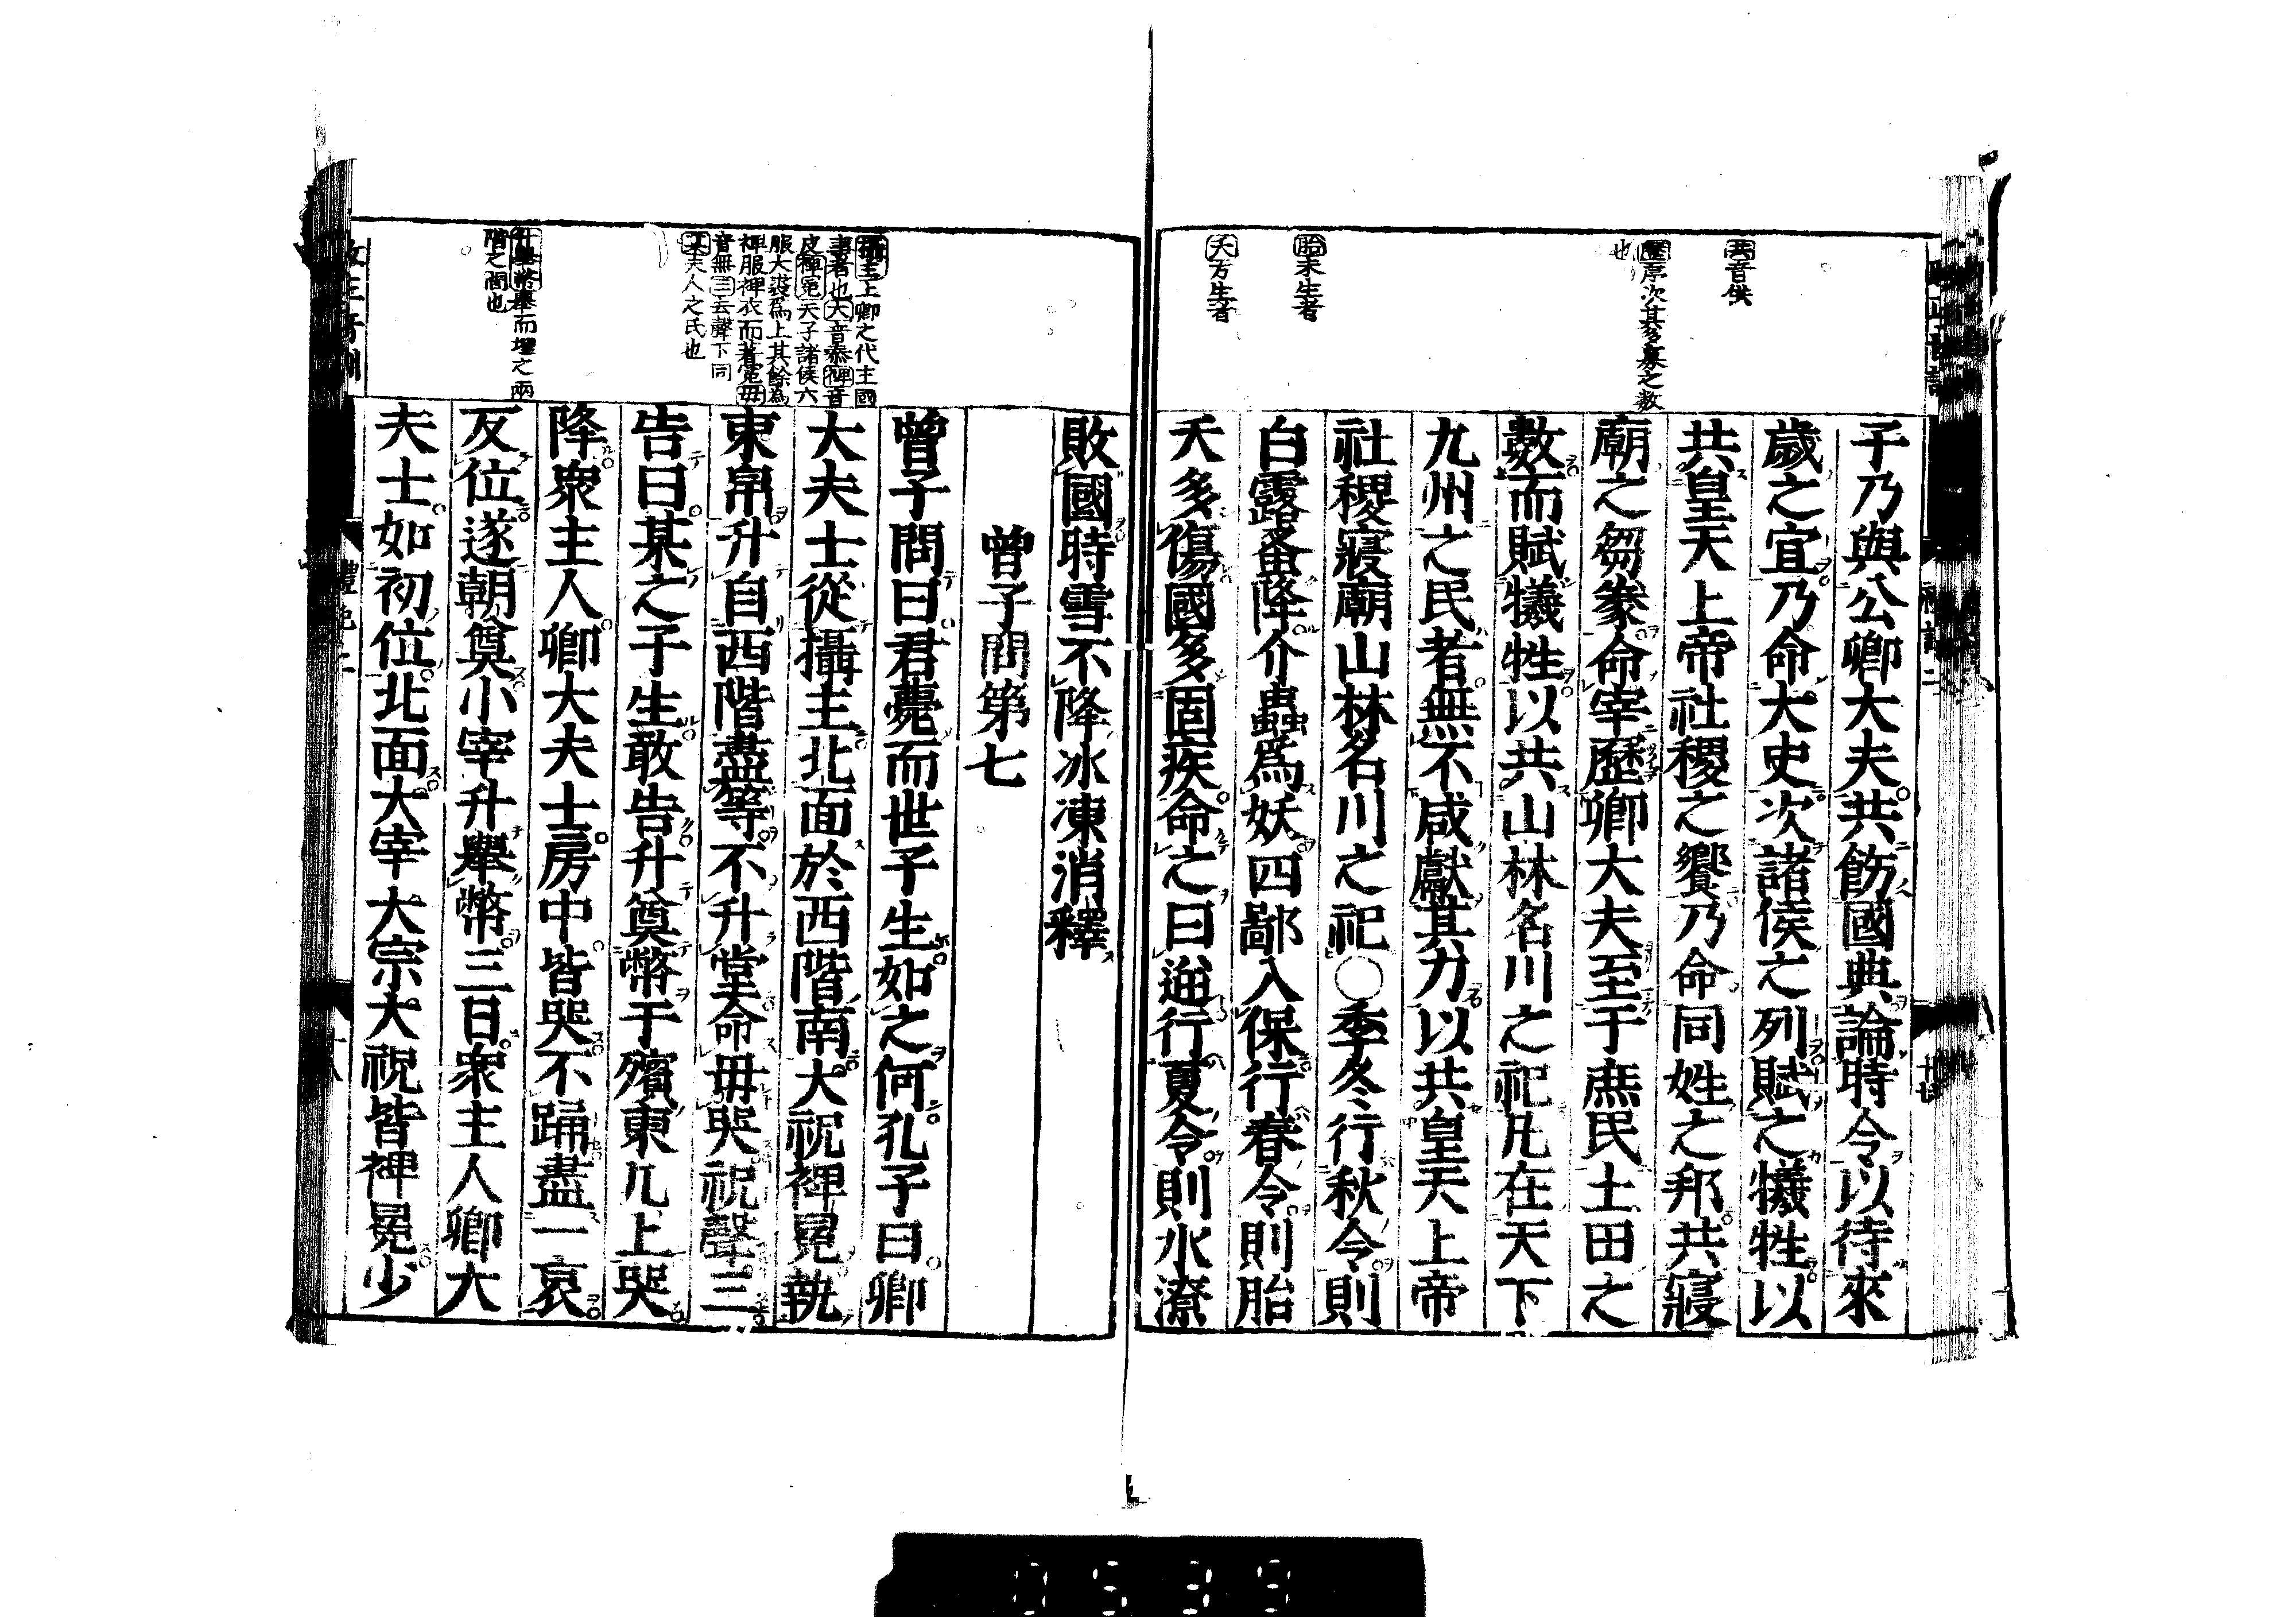 共音供
歷序次其多寡之数
也
胎未生者
夭方生者
子乃與公卿大夫共飭國典論時令以待來
歲之宜乃命大史次諸侯之列賦之犧牲以
共皇天上帝社稷之饗乃命同姓之邦共寢
廟之芻豢命宰歷卿大夫至于庶民土田之
數而賦犧牲以共山林名川之祀凡在天下
九州之民者無不咸獻其力以共皇天上帝
社稷寢廟山林名川之祀〇季冬行秋令則
白露蚤降介蟲爲妖四鄙入保行春令則胎
夭多傷國多固疾命之曰逆行夏令則水潦
攝主上卿之代主國
事者也大音泰裨音
皮裨冕天子諸侯六
服大裘爲上其餘爲
裨服裨衣而著冕毋
音無三去聲下同
某夫人之氏也
升舉幣舉而埋之兩
階之間也
敗國時雪不降冰凍消釋
曾子問第七
曾子問曰君薨而世子生如之何孔子曰卿
大夫士從攝主北面於西階南大祝裨冕執
束帛升自西階盡等不升堂命毋哭祝聲三
告曰某之子生敢告升奠幣于殯東几上哭
降衆主人卿大夫士房中皆哭不踊盡一哀
反位遂朝奠小宰升舉幣三日衆主人卿大
夫士如初位北面大宰大宗大祝皆裨冕少
0539